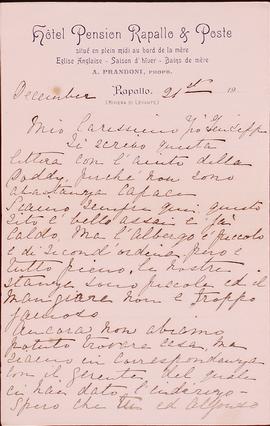 Hôtel Pension Rapallo & Poste
situé en plein midi au bord de la mère
Eglise Anglaise - Saison d'Hiver - Bains de mère
A. PRANDONI, PROPR.
December 21st 19
Rapallo.
(RIVIERA DI LEVANTE)
Mio Carissimo Giuseppe
Ti scrivo questa
lettera con l'aiuto della
Doddy, perchè non sono
abastanza capace
Siamo sempre qui questo
sito è bello assai e fa
caldo, Ma l'albergo è piccolo
e di second'ordine, però è
tutto pieno, le nostre
stanze sono piccole ed il
mangiare non è troppo
famoso
Ancora non abiamo
potuto trovare casa, ma
siamo in correspondanza
con il gerente, del quale
ci hai dato l'indirizo -
Spero che tu ed Alfonso